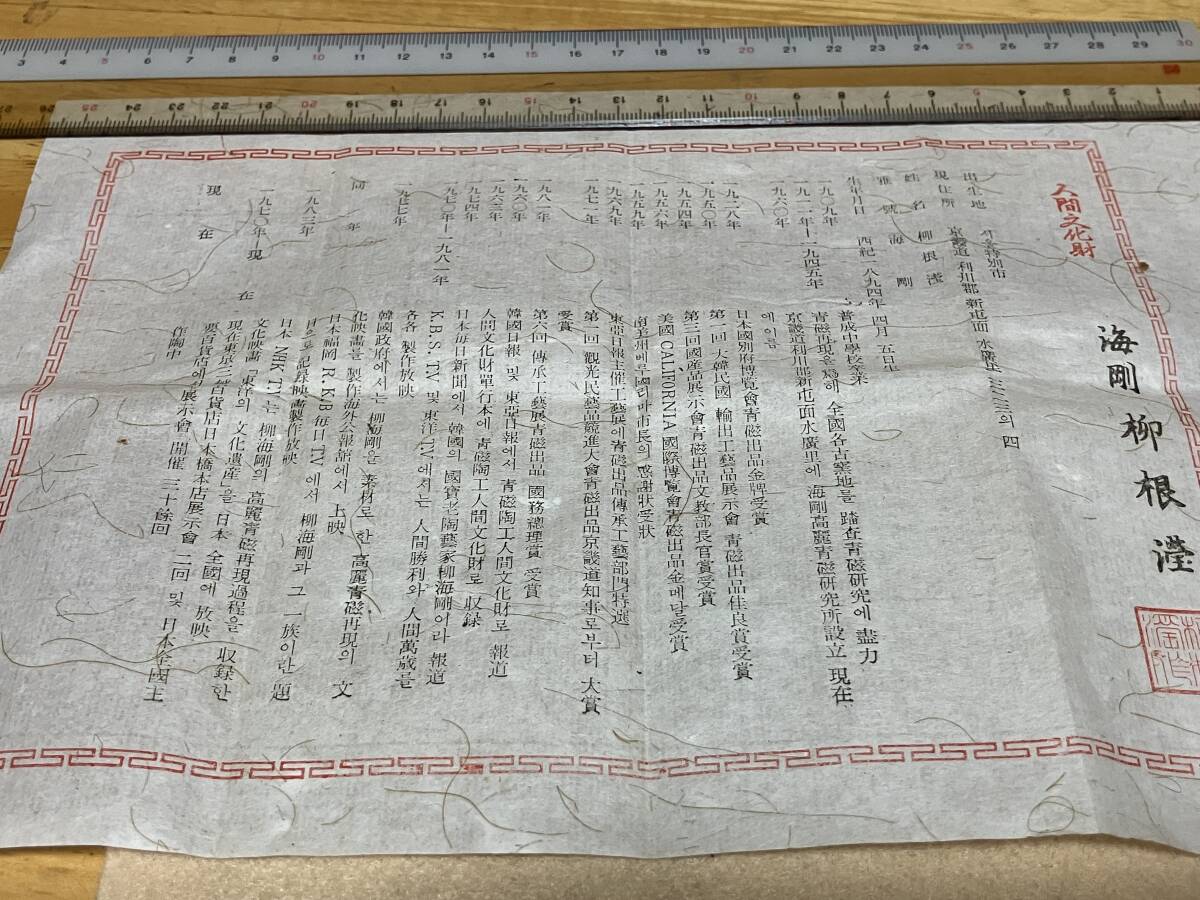 海剛柳根瀅
人間文化財
出生地 서울特別市
現住所 京畿道 利川郡 新屯面 水廣里 의 四
姓名 柳根瀅
雅號 海剛
生年月日 西紀一八九四年 四月 五日生
一九〇九年 普成中學校卒業
一九一一年—一九四五年 青磁再現을 爲해 全國各古窯地를 踏査青磁研究에 盡力
一九六〇年 京畿道利川郡新屯面水廣里에 海剛高麗青磁研究所設立 現在
에 이름
一九二八年 日本國別府博覽會青磁出品金牌受賞
一九五〇年 第一回 大韓民國 輸出工藝品展示會 青磁出品佳良賞受賞
一九五四年 第三回國産品展示會青磁出品文教部長官賞受賞
一九五六年 美國 CALIFORNIA 國際博覽會青磁出品金메달受賞
一九五九年 南美州베루國리마市長의 感謝狀受狀
一九六九年 東亞日報主催工藝展에青磁出品傳承工藝部門特選
一九七一年 第一回 觀光民藝品競進大會青磁出品京畿道知事로부터 大賞
受賞
一九八一年 第六回 傳承工藝展青磁出品 國務總理賞 受賞
一九六〇年 韓國日報 및 東亞日報에서 青磁陶工人間文化財로 報道
一九六三年 人間文化財單行本에 青磁陶工人間文化財로 收録
一九七四年 日本每日新聞에서 韓國의 國寶老陶藝家柳海剛이라 報道
一九七〇年—一九八一年 K.B.S. TV 및 東洋T.V에서는 人間勝利와 人間萬歲를
各各 製作放映
一九七七年 韓國政府에서는 柳海剛을 素材로 한 高麗青磁再現의 文
化映畵를 製作海外公報舘에서 上映
同年 日本福岡 R.K.B每日TV 에서 柳海剛과 그 一族이란 題
目으로記録映畵製作放映
一九八三年 日本 NHK TV는 柳海剛의 高麗青磁再現過程을 收録한
文化映畵「東洋의 文化遺産」을 日本 全國에 放映
一九七〇年—現在 現在東京三越百貨店日本橋本店展示會 二回 및 日本全國主
要百貨店에서展示會 開催 三十餘回
現在 作陶中